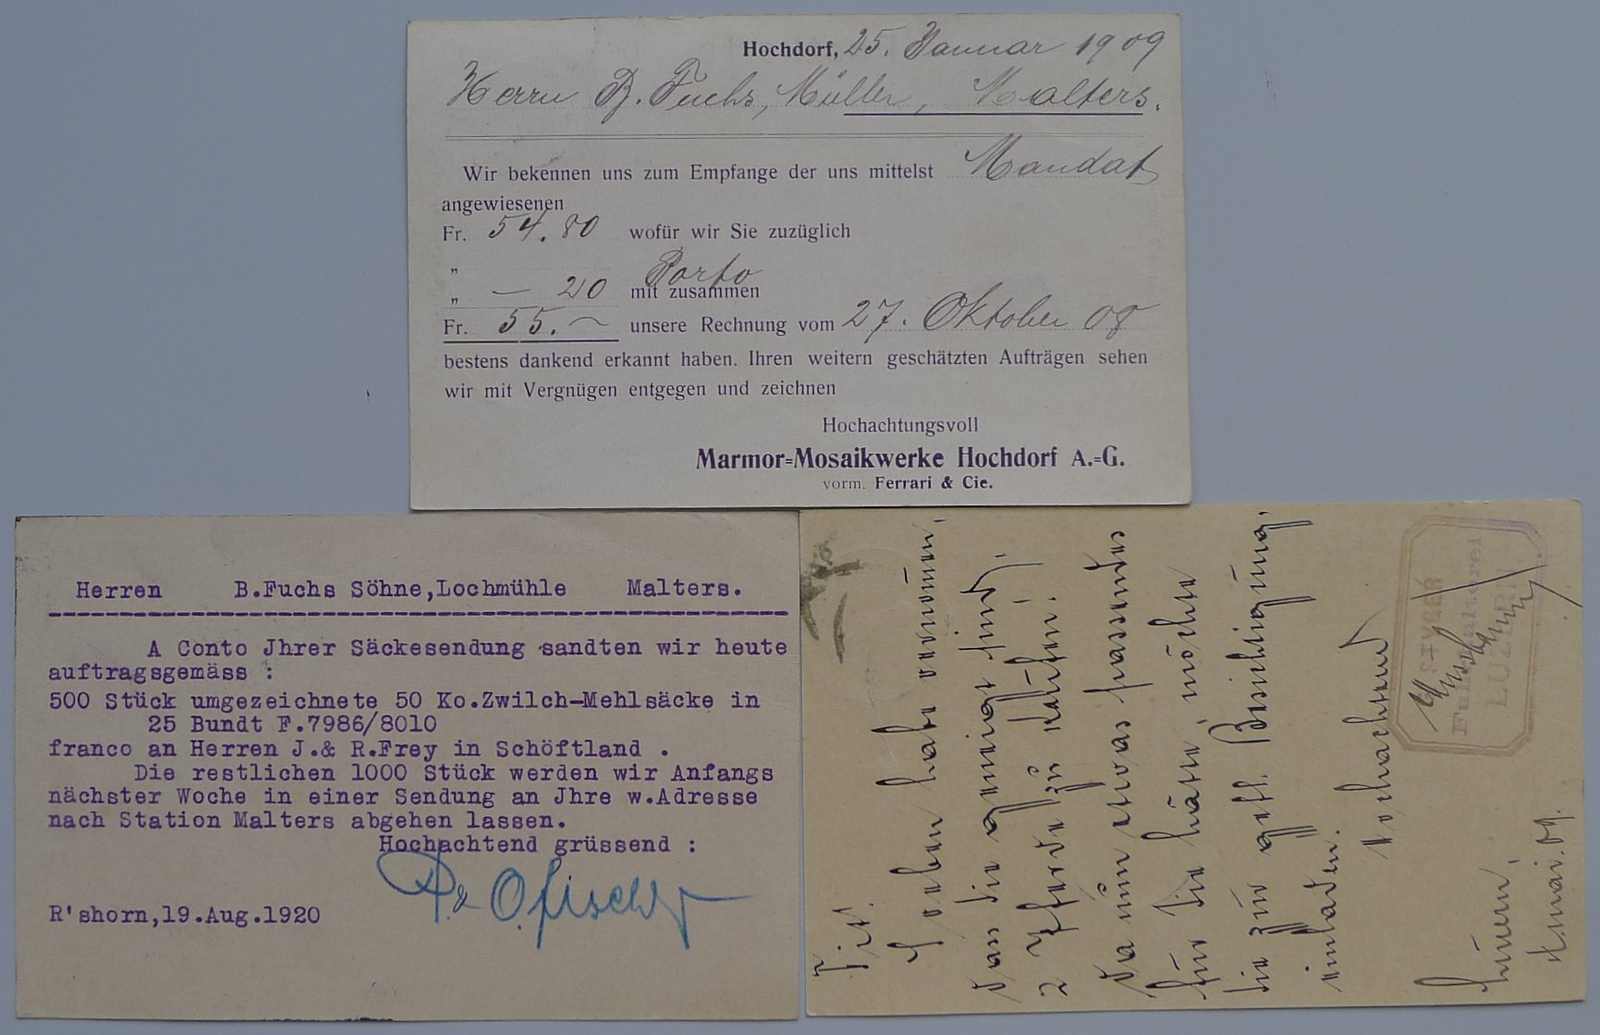 Hochdorf, 25. Januar 1909
Herrn B. Fuchs, Müller, Malters.
Wir bekennen uns zum Empfange der uns mittelst Mandat
angewiesenen
Fr. 54.80 wofür wir Sie zuzüglich
„ Porto
„ — 20 mit zusammen
Fr. 55.— unsere Rechnung vom 27. Oktober 08
bestens dankend erkannt haben. Ihren weitern geschätzten Aufträgen sehen
wir mit Vergnügen entgegen und zeichnen
Hochachtungsvoll
Marmor=Mosaikwerke Hochdorf A.=G.
vorm. Ferrari & Cie.
Herren B.Fuchs Söhne,Lochmühle Malters.
A Conto Jhrer Säckesendung sandten wir heute
auftragsgemäss :
500 Stück umgezeichnete 50 Ko.Zwilch-Mehlsäcke in
25 Bundt F.7986/8010
franco an Herren J.& R.Frey in Schöftland .
Die restlichen 1000 Stück werden wir Anfangs
nächster Woche in einer Sendung an Jhre w.Adresse
nach Station Malters abgehen lassen.
Hochachtend grüssend :
O. Fischer
R'shorn,19.Aug.1920
Tit.
Soeben habe vernommen,
dass Sie geneigt sind,
2 Pferde zu kaufen.
Da nun etwas passendes
für Sie hätte, möchte
Sie zur gefl. Besichtigung
einladen.
Hochachtend
Luzern,
09.